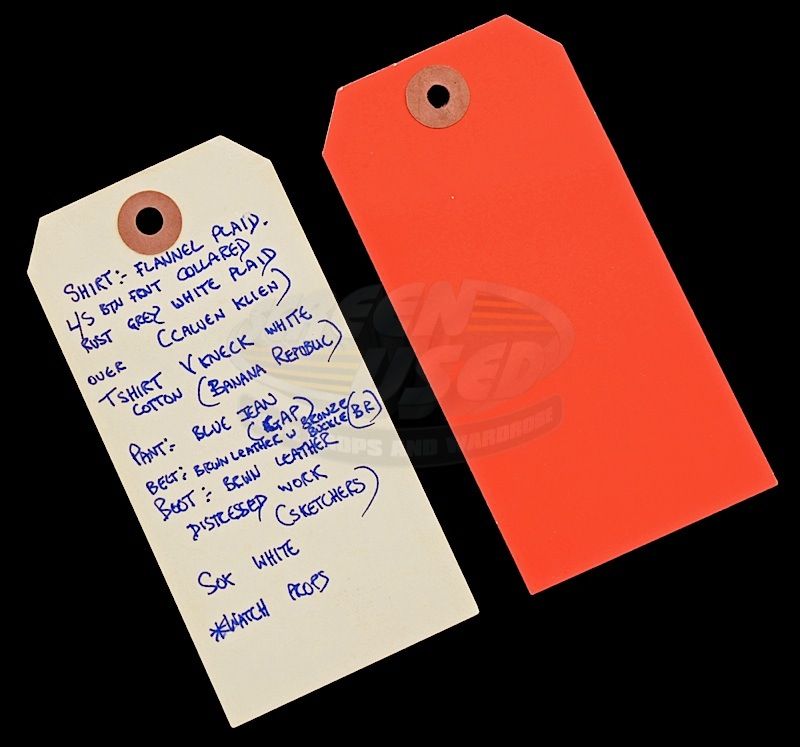 SHIRT:- FLANNEL PLAID.
L/S BTN FONT COLLARED
RUST GREY WHITE PLAID
OVER (CALVEN KLIEN)
TSHIRT VKNECK WHITE
COTTON (BANANA REPUBLIC)
PANT:- BLUE JEAN
(GAP)
BELT:- BRWN LEATHER W BRONZE
BUCKLE (BR)
BOOT:- BRWN LEATHER
DISTRESSED WORK
(SKETCHERS)
SOK WHITE
*WATCH PROPS
SCREEN
USED
PROPS AND WARDROBE